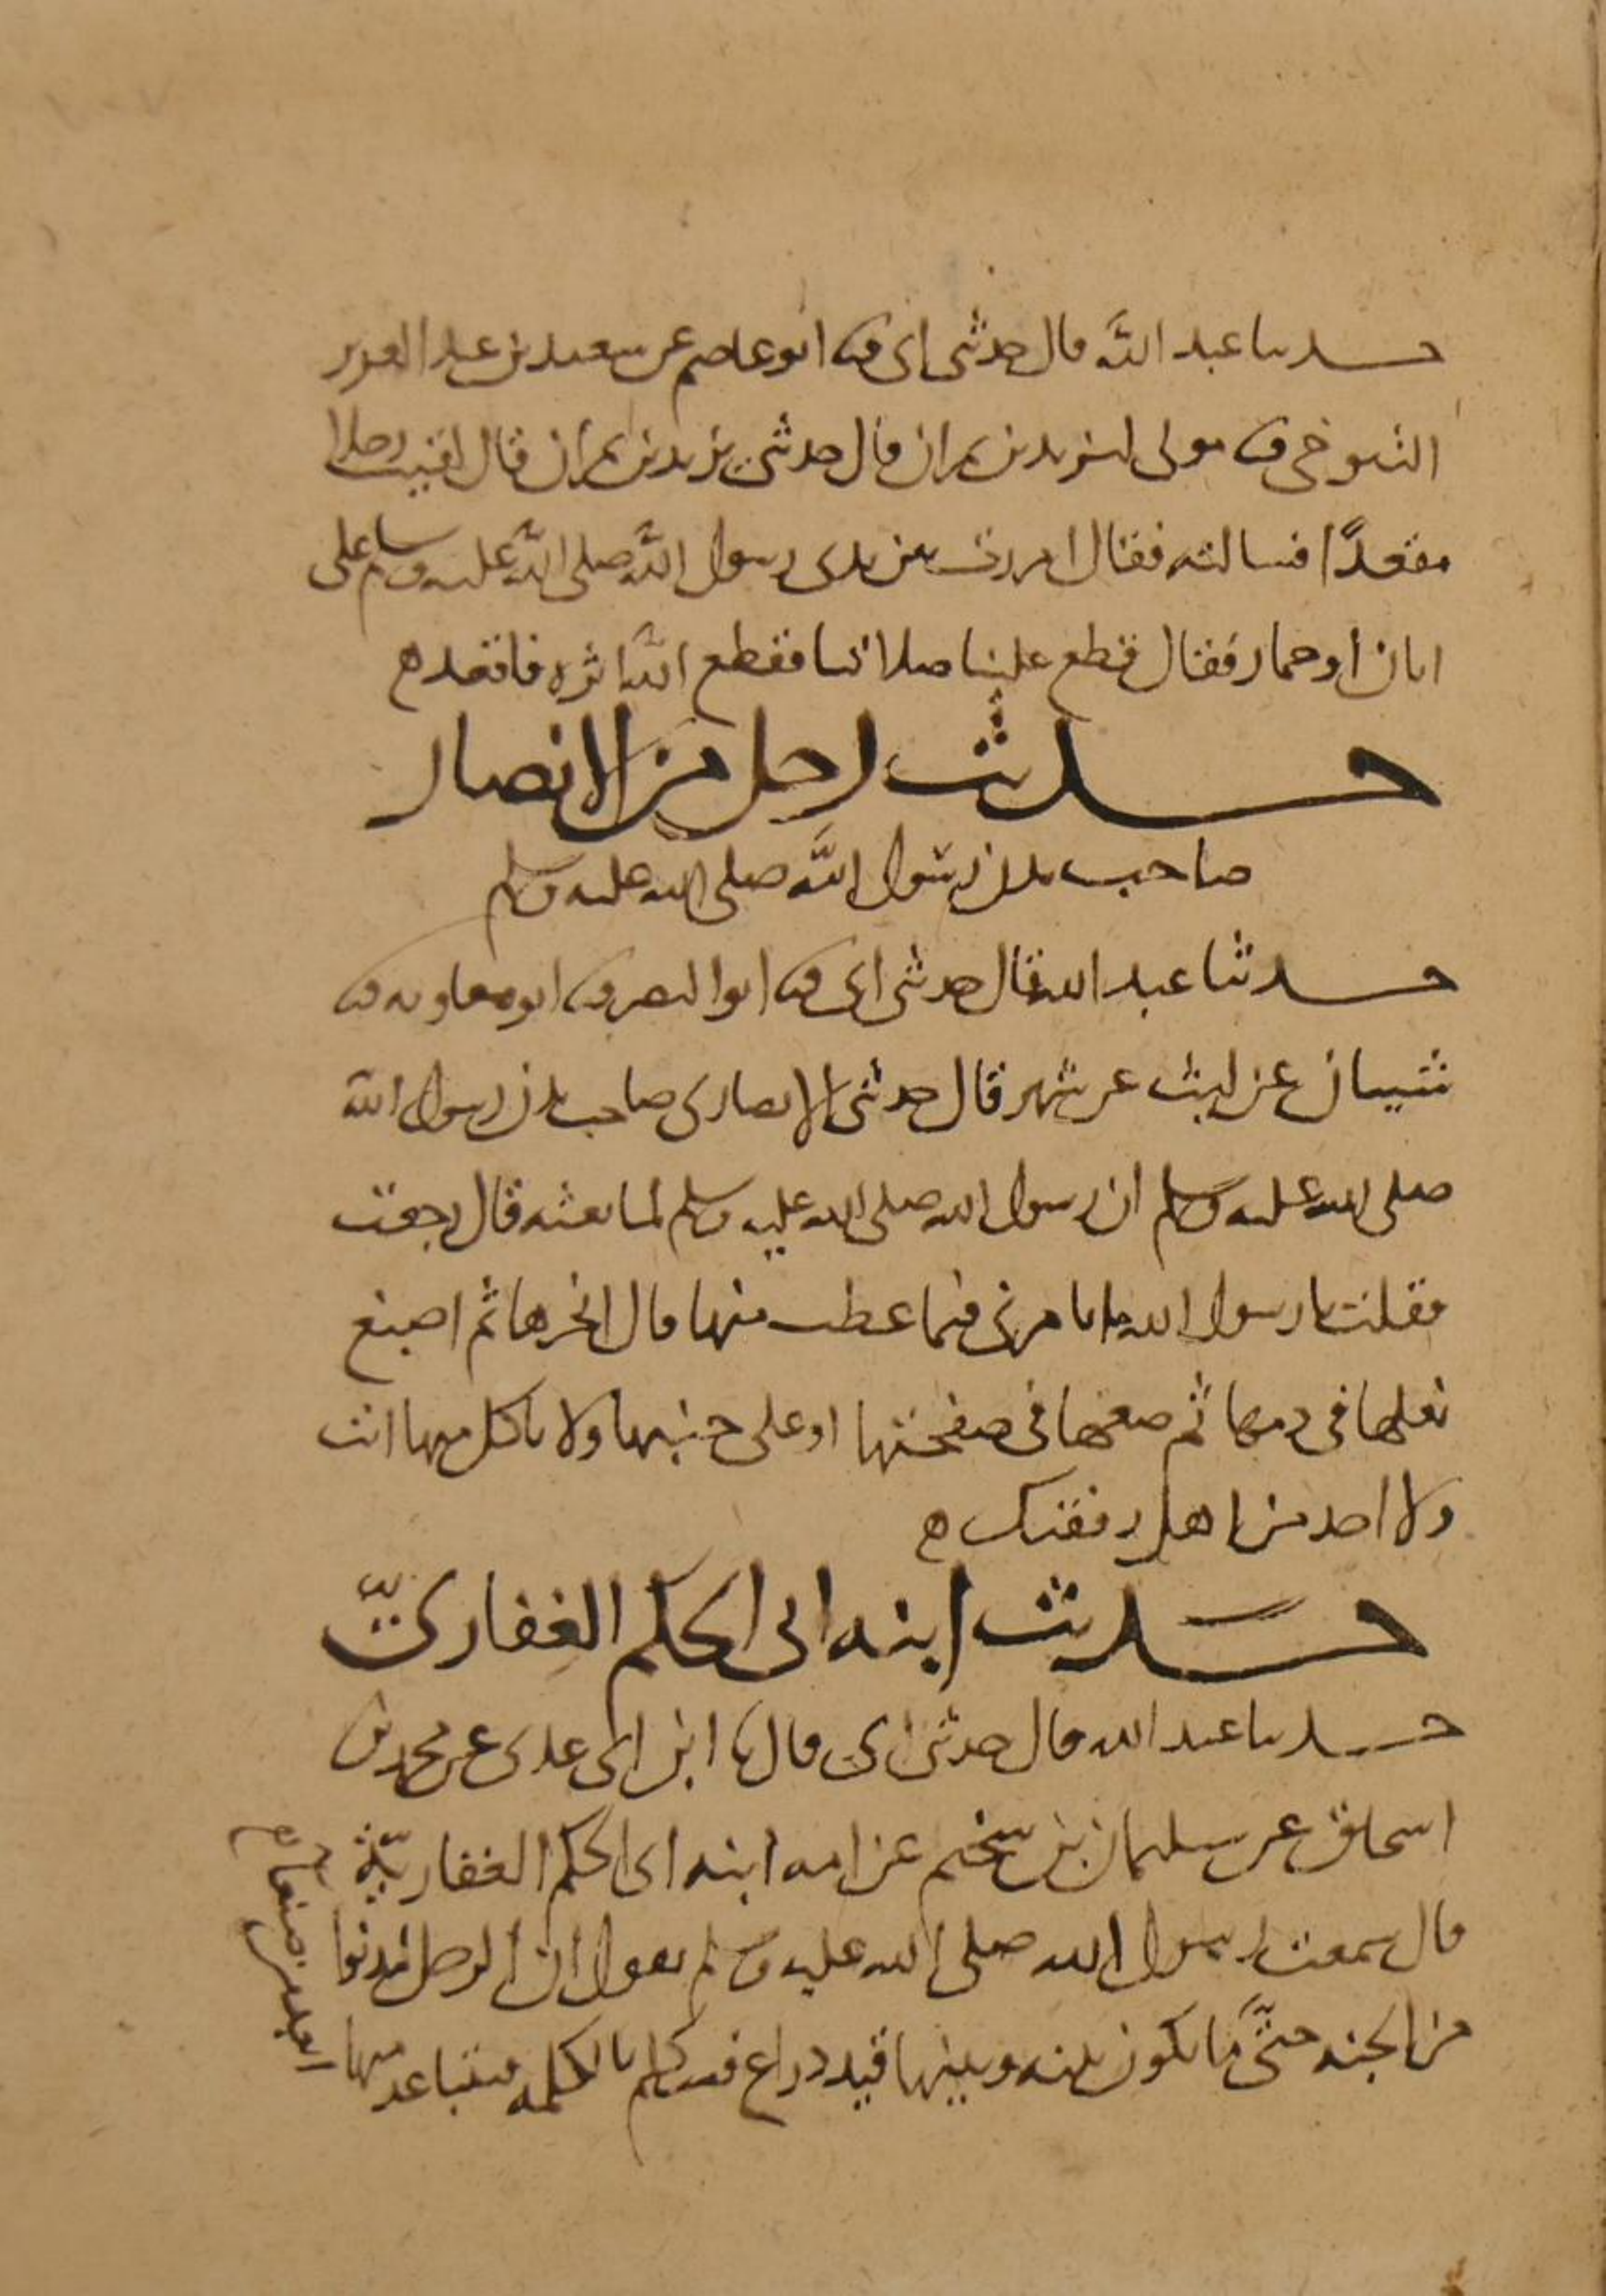 حدثنا عبد الله قال حدثني ابي ثنا ابو عاصم عن سعيد بن عبد العزيز
التنوخي ثنا مولى ليزيد بن نمران قال حدثني يزيد بن نمران قال لقيت رجلا
مقعدًا فسالته فقال مررت بين يدي رسول الله صلى الله عليه وسلم على
اتان او حمار فقال قطع علينا صلاتنا فقطع الله اثره فاقعد ه
حديث رجل من الانصار
صاحب بدن رسول الله صلى الله عليه وسلم
حدثنا عبد الله قال حدثني ابي ثنا ابو النضر ثنا ابو معاويه ثنا
شيبان عن ليث عن شهر قال حدثني الانصاري صاحب بدن رسول الله
صلى الله عليه وسلم ان رسول الله صلى الله عليه وسلم لما بعثه قال رجعت
فقلت يا رسول الله ما تامرني فيما عطب منها قال انحرها ثم اصبغ
نعلها في دمها ثم ضعها في صفحتها او على جنبها ولا تاكل منها انت
ولا احد من اهل رفقتك ه
حديث ابنه ابي الحكم الغفاري
حدثنا عبد الله قال حدثني ابي قال ثنا ابن ابي عدي عن محمد بن
اسحاق عن سليمان بن سحيم عن امه ابنه ابي الحكم الغفاريّة
قال سمعت رسول الله صلى الله عليه وسلم يقول ان الرجل ليدنوا
من الجنه حتّى ما يكون بينه وبينها قيد ذراع فيتكلم بالكلمه فيتباعد منها
ابعد من صنعا ه